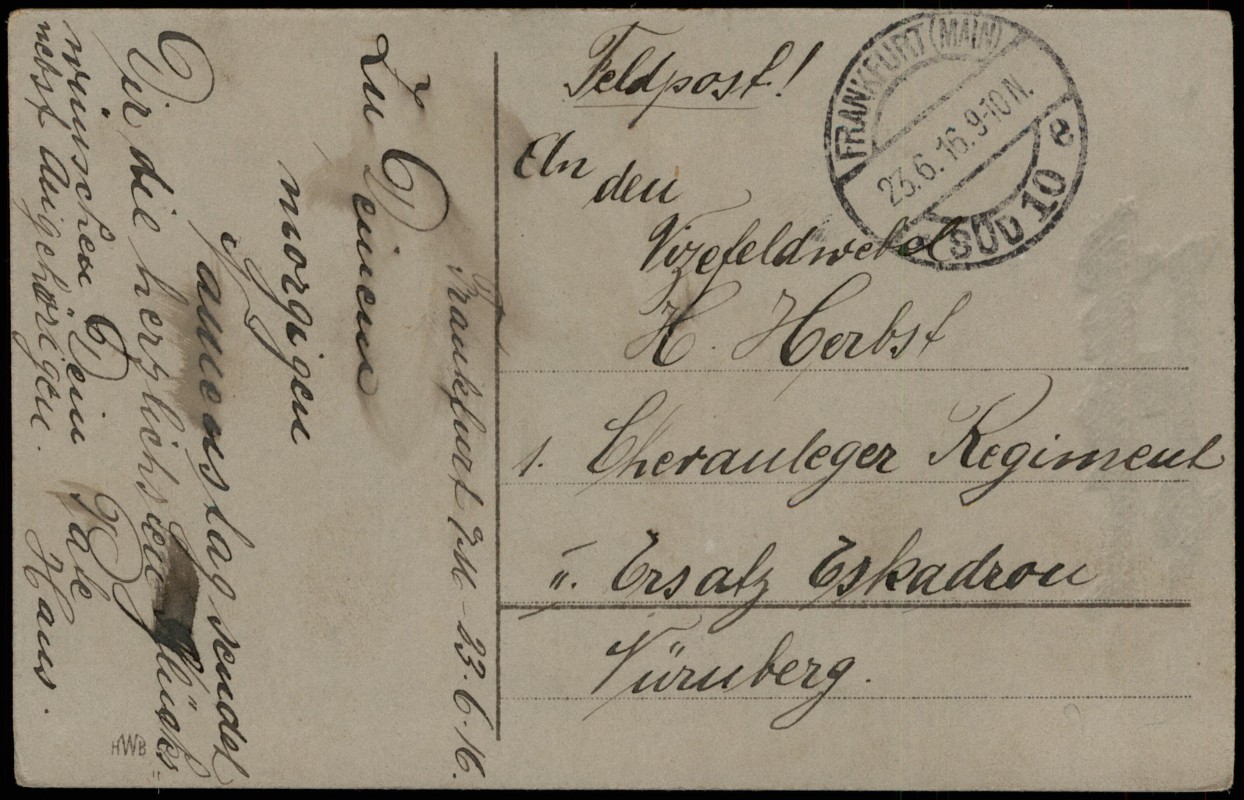 Feldpost!
FRANKFURT (MAIN)
23.6.16.9-10N.
SÜD 10 e
An den
Vizefeldwebel
H. Herbst
1. Chevauleger Regiment
II. Ersatz Eskadron
Nürnberg.
Frankfurt a/M - 23.6.16.
Zu Deinem
morgigen
Namenstag sendet
Dir die herzlichsten Glücks=
wünschen Dein
nebst Angehörigen. Haus.
HWB